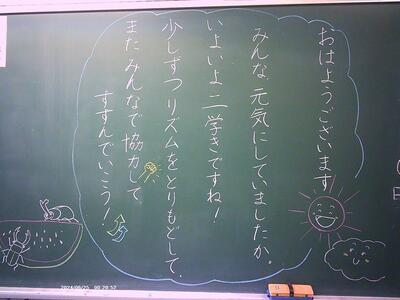 おはようございます
みんな、元気にしていましたか。
いよいよ二学きですね!
少しずつリズムをとりもどして、
またみんなで協力して
すすんでいこう!